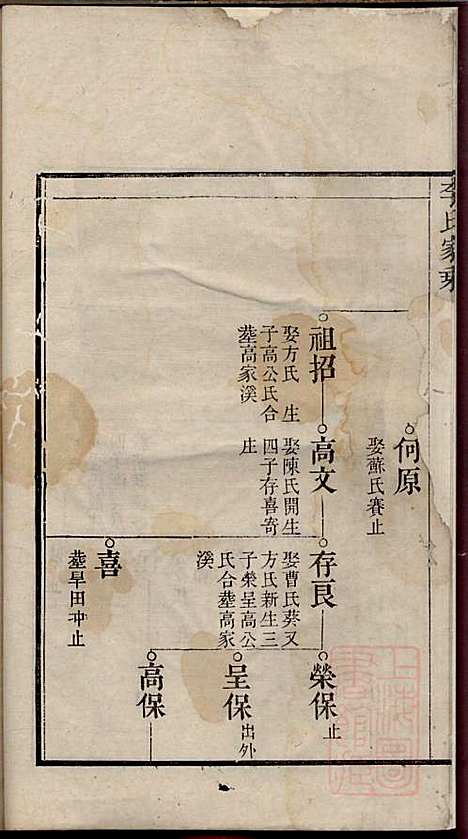 李氏家乘
何原
娶蘇氏賽止
祖招
娶方氏 生
子高公氏合
塟高家溪
高文
娶陳氏開生
四子存喜寄
庄
存良
娶曹氏葵又
方氏新生三
子榮呈高公
氏合塟高家
溪
喜
塟旱田冲止
榮保
止
呈保
出外
高保